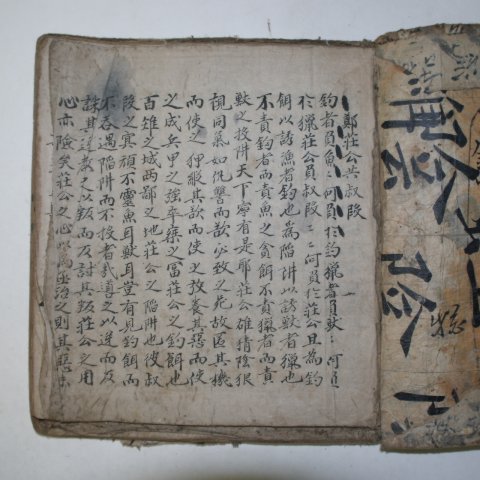 鄭莊公共叔段
釣者負魚魚何負於釣獵者負獸獸何負
於獵莊公負叔段叔段何負於莊公且爲鈎
餌以誘漁者釣也爲陷阱以誘獸者獵也
不責釣者而責魚之貪餌不責獵者而責
獸之投阱天下寧有是耶莊公雄猜陰狠
視同氣如仇讐而欲必致之死故匿其機
而使之狎縱其欲而使之放養其惡而使
之成兵甲之強卒乘之富莊公之釣餌也
百雉之城兩鄙之地莊公之陷阱也彼叔
段之冥頑不靈魚耳獸耳豈有見釣餌而
不吞過陷阱而不投者哉導之以逆而反
誅其逆敎之以叛而反討其叛莊公之用
心亦險矣莊公之心以爲亟治之則其惡未